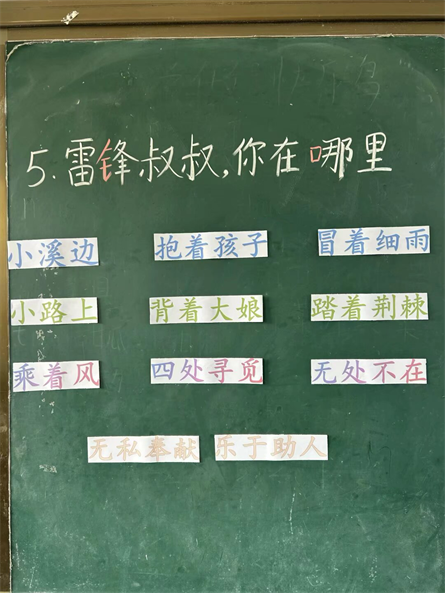 5.雷锋叔叔,你在哪里
小溪边 抱着孩子 冒着细雨
小路上 背着大娘 踏着荆棘
乘着风 四处寻觅 无处不在
无私奉献 乐于助人